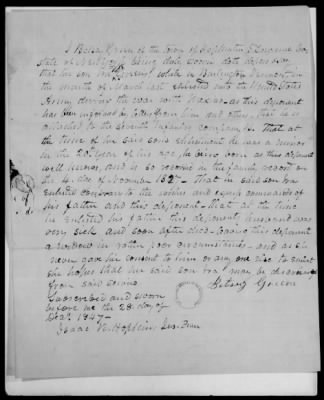 I Betsey Green of the town of
State of being duly sworn doth depose & say
that her son while in Burlington Vermont in
the month of March last enlisted into the United States
Army during the war with Mexico as this deponent
has been informed by letters from him and others, that he is
attached to the Seventh Infantry Company That at
the time of his said sons enlistment he was a minor
in the 20th year of his age, he being born as this deponent
well knows, and is so record in the family record on
the 4 day November 182 That he said son
enlisted contrary to the wishes and express commands of
his father and this deponent - that at the time
he enlisted his father this deponents husband was
very sick and soon after died - leaving this deponent
a widow in rather poor circumstances - and as she
never gave her consent to him or any one else to enlist
she hopes that her said son may be discharged
from said service
Betsey Green
Subscribed and sworn
before me the 28 day of
Dec 1847 -
Isaac R. Hopkins Jus. Peace